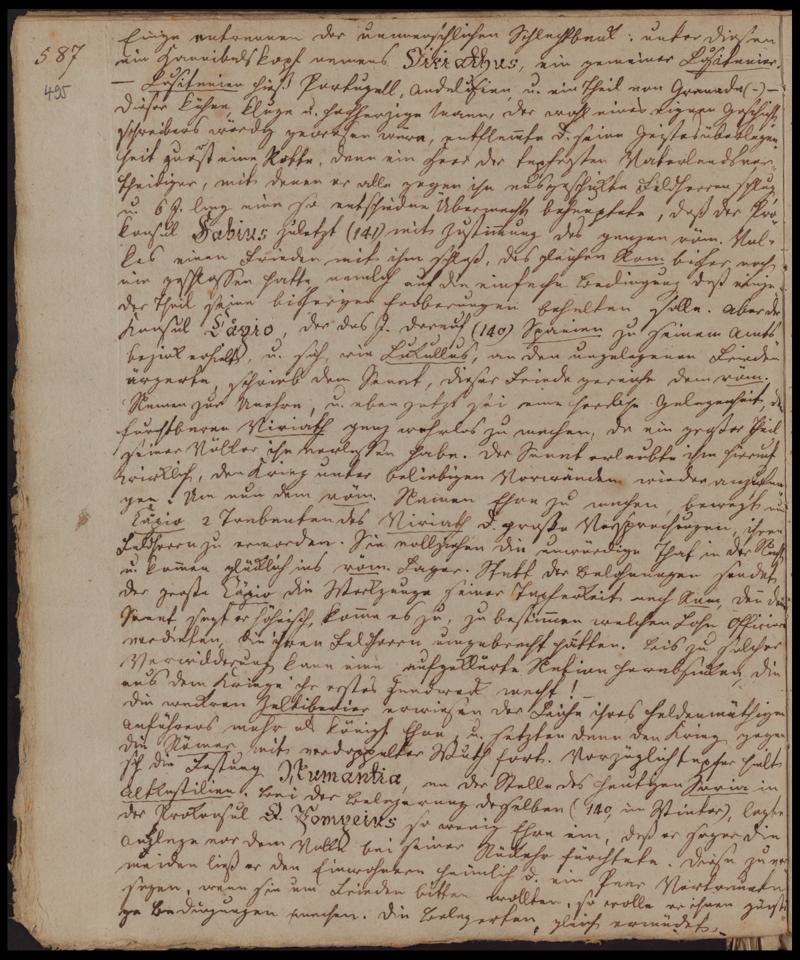 587
495
Einige entrannen der unmenschlichen Schlachtbank: unter diesen
ein Hannibalskopf namens Viriathus, ein gemeiner Lusitanier.
— Lusitanien hieß Portugall, Andalusien, u. ein Theil von Granada (-) —
Dieser kühne kluge u. hochherzige Mann, der wohl eines eignen Geschicht-
schreibers würdig gewesen wäre, entflammte d. seine Geistesüberlegen-
heit zuerst eine Rotte, dann ein Heer der tapfersten Vaterlandsver-
theidiger, mit denen er alle gegen ihn ausgeschickte Feldherren schlug,
u. 6 J. lang eine so entschiedne Übermacht behauptete, daß der Pro-
konsul Fabius zuletzt (141) mit Zustimmung des ganzen röm. Vol-
kes einen Frieden mit ihm schloß, desgleichen Rom bisher noch
nie geschlossen hatte nemlich auf die einfache Bedingung daß ein jeder
der Theil seine bisherigen Eroberungen behalten solle. Aber der
Konsul Cäpio, der das J. darauf (140) Spanien zu seinem Amts-
bezirk erhielt, u. sich, wie Lukullus, an den ungelegenen Frieden
ärgerte, schrieb dem Senat, dieser Friede gereiche dem röm.
Namen zur Unehre, u. eben jetzt sei eine herrliche Gelegenheit, den
furchtbaren Viriath ganz wehrlos zu machen, da ein großer Theil
seiner Völker ihn verlassen habe. Der Senat erlaubte ihm hierauf
wirklich, den Krieg unter beliebigen Vorwänden wieder anzufan-
gen. Um nun dem röm. Namen Ehre zu machen, bewegt nun
Cäpio 2 Trabanten des Viriath d. große Versprechungen, ihren
Feldherrn zu ermorden. Sie vollziehen die unwürdige That in der Nacht
u. kommen glücklich ins röm. Lager. Statt der Belohnungen sendet
der große Cäpio die Werkzeuge seiner Tapferkeit nach Rom, denn dem
Senat, sagt er höhnisch, komme es zu, zu bestimmen welchen Lohn Officiere
verdienten, die ihren Feldherrn umgebracht hätten. Bis zu solcher
Verwilderung kann eine aufgeklärte Nation herabsinken, die
aus dem Kriege ihr erstes Handwerk macht!
Die wackren Zeltiberier erwiesen der Leiche ihres heldenmüthigen
Anführers mehr als königl. Ehre, u. setzten dann den Krieg gegen
die Römer mit verdoppelter Wuth fort. Vorzüglich tapfer hielt
sich die Festung Numantia, an der Stelle des heutigen Soria in
Altkastilien. Bei der Belagerung derselben (140, im Winter), legte
der Prokonsul Q. Pompeius so wenig Ehre ein, daß er sogar die
Anklage vor dem Volke bei seiner Rükehr fürchtete. Diese zu ver-
meiden ließ er den Einwohnern heimlich d. ein Paar Vertraute
sagen, wenn sie um Frieden bitten wollten, so wolle er ihnen günsti-
ge Bedingungen machen. Die Belagerten, gleich ermüdet,